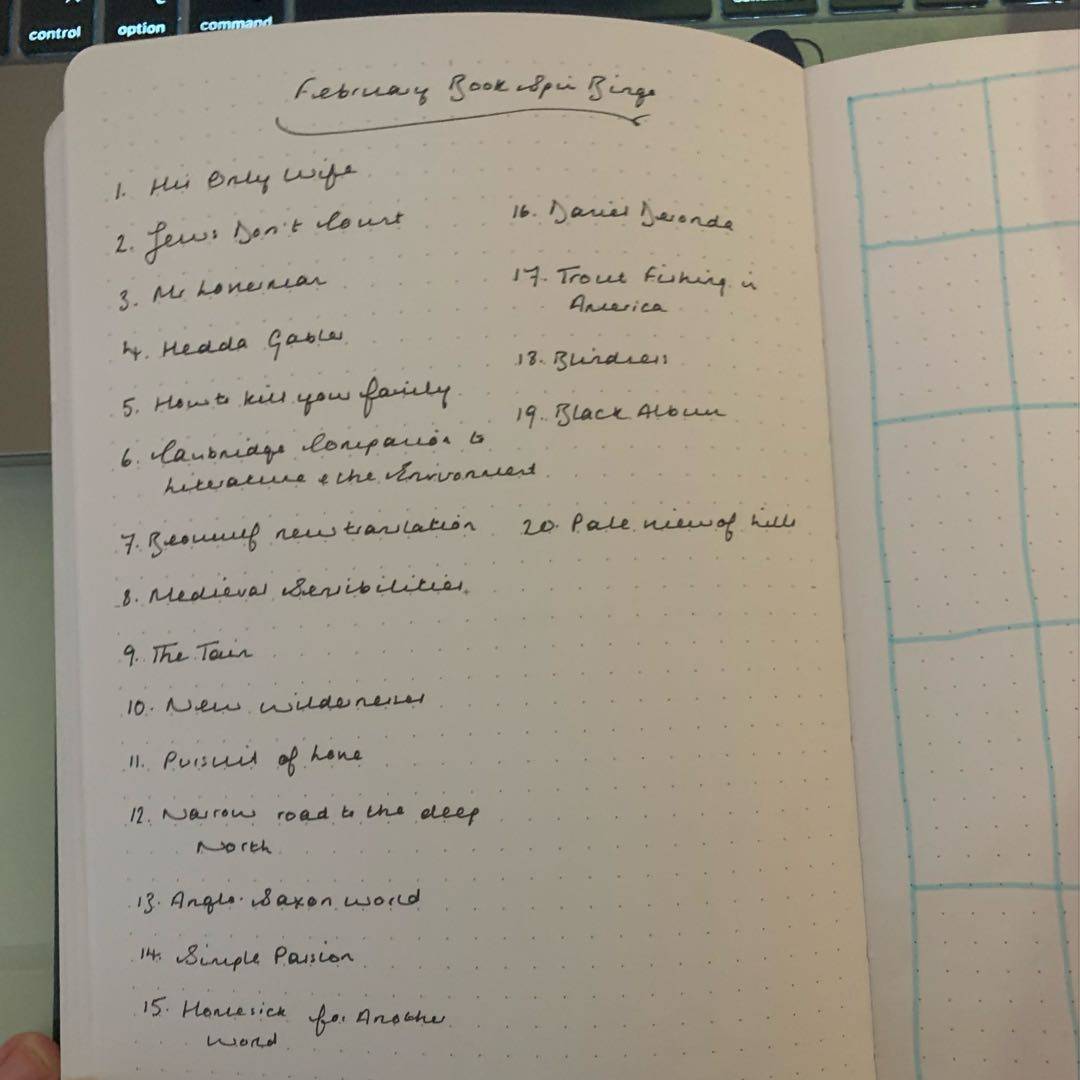 control
option
command
February Book Spin Bingo
1. His Only Wife
2. Jews Don't Count
3. Mr Loverman
4. Hedda Gabler
5. How to kill your family
6. Cambridge Companion to
Literature & the Environment
7. Beowulf new translation
8. Medieval Sensibilities
9. The Tain
10. New wilderness
11. Pursuit of Love
12. Narrow road to the deep
North
13. Anglo-Saxon world
14. Simple Passion
15. Homesick for Another
World
16. Daniel Deronda
17. Trout Fishing in
America
18. Blindness
19. Black Album
20. Pale view of hills